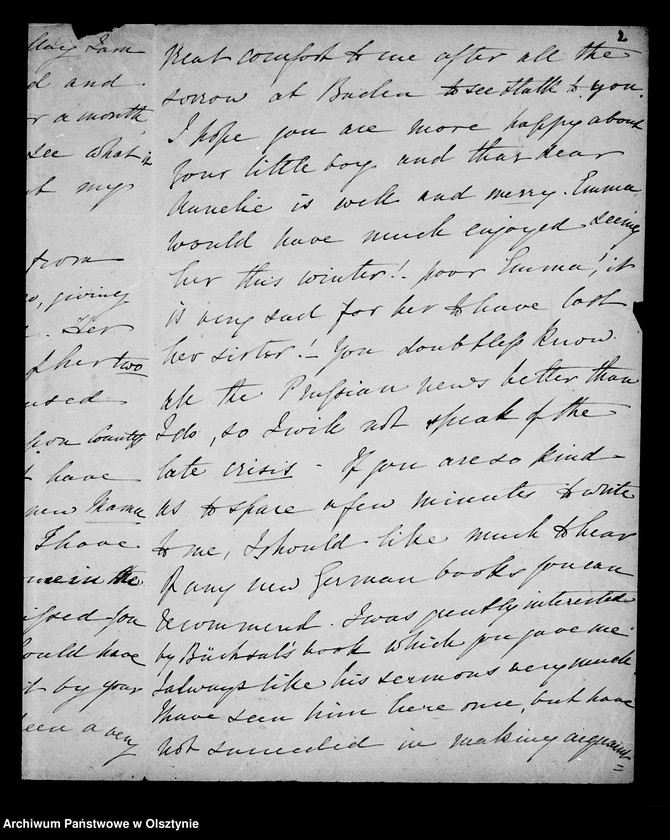 2
May I am
d and
r a month
see what it
t my
from
o, giving
. Her
f her two
used
pon County
t have
new Mama
I have
me in the
issed you
ould have
it by your
een a very
great comfort to me after all the
sorrow at Baden to see & talk to you.
I hope you are more happy about
your little boy and that dear
Aurelie is well and merry. Emma
would have much enjoyed seeing
her this winter! - poor Emma! it
is very sad for her to have lost
her sister! - You doubtless know
all the Prussian news better than
I do, so I will not speak of the
late crisis - If you are so kind
as to spare a few minutes to write
to me, I should like much to hear
of any new German books you can
recommend. I was greatly interested
by Büchsel's book which you gave me
I always like his sermons very much.
I have seen him here once, but have
not succeeded in making acquain=
Archiwum Państwowe w Olsztynie